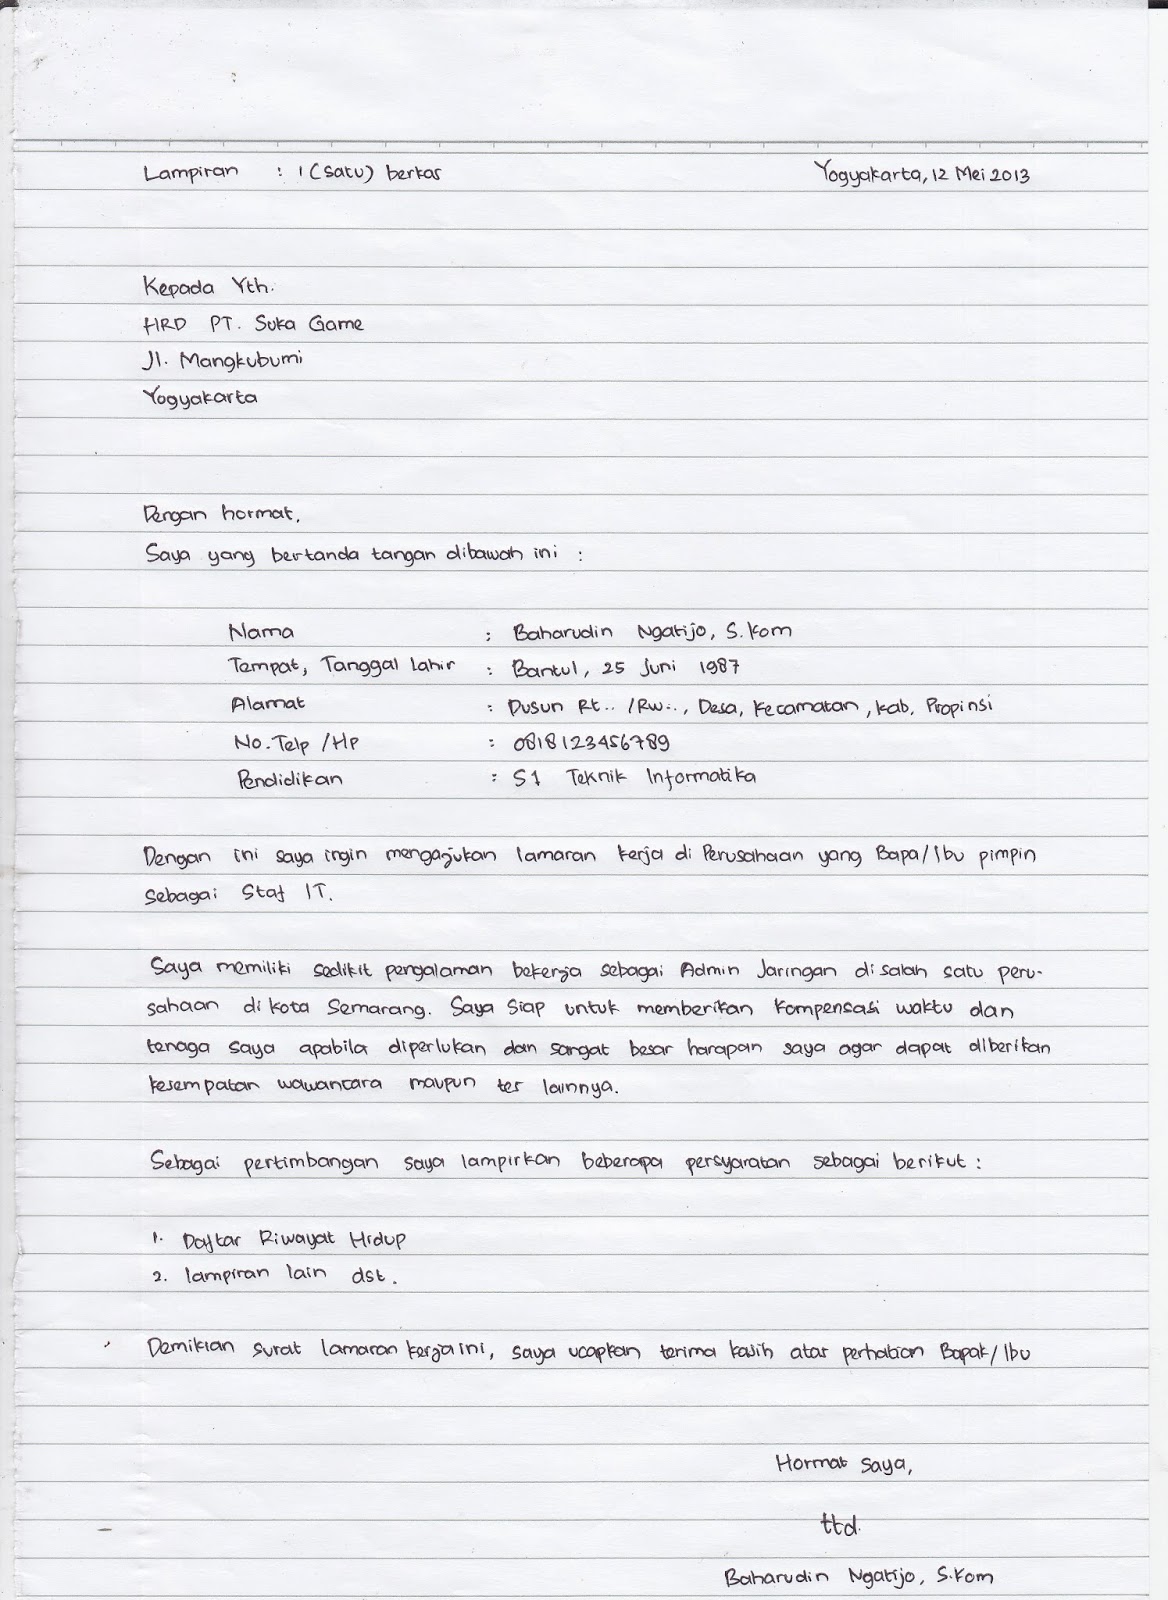 Lampiran : 1 (satu) berkas Yogyakarta, 12 Mei 2013
Kepada Yth.
HRD PT. Suka Game
Jl. Mangkubumi
Yogyakarta
Dengan hormat,
Saya yang bertanda tangan dibawah ini :
Nama : Baharudin Ngatijo, S.Kom
Tempat, Tanggal lahir : Bantul, 25 Juni 1987
Alamat : Dusun Rt.. /Rw.., Desa, Kecamatan, Kab, Propinsi
No. Telp /Hp : 0818123456789
Pendidikan : S1 Teknik Informatika
Dengan ini saya ingin mengajukan lamaran kerja di Perusahaan yang Bapa/Ibu pimpin
sebagai Staf IT.
Saya memiliki sedikit pengalaman bekerja sebagai Admin Jaringan disalah satu peru-
sahaan di kota Semarang. Saya siap untuk memberikan kompensasi waktu dan
tenaga saya apabila diperlukan dan sangat besar harapan saya agar dapat diberikan
kesempatan wawancara maupun tes lainnya.
Sebagai pertimbangan saya lampirkan beberapa persyaratan sebagai berikut :
1. Daftar Riwayat Hidup
2. lampiran lain dst.
Demikian surat lamaran kerja ini, saya ucapkan terima kasih atas perhatian Bapak/Ibu
Hormat saya,
ttd.
Baharudin Ngatijo, S.Kom